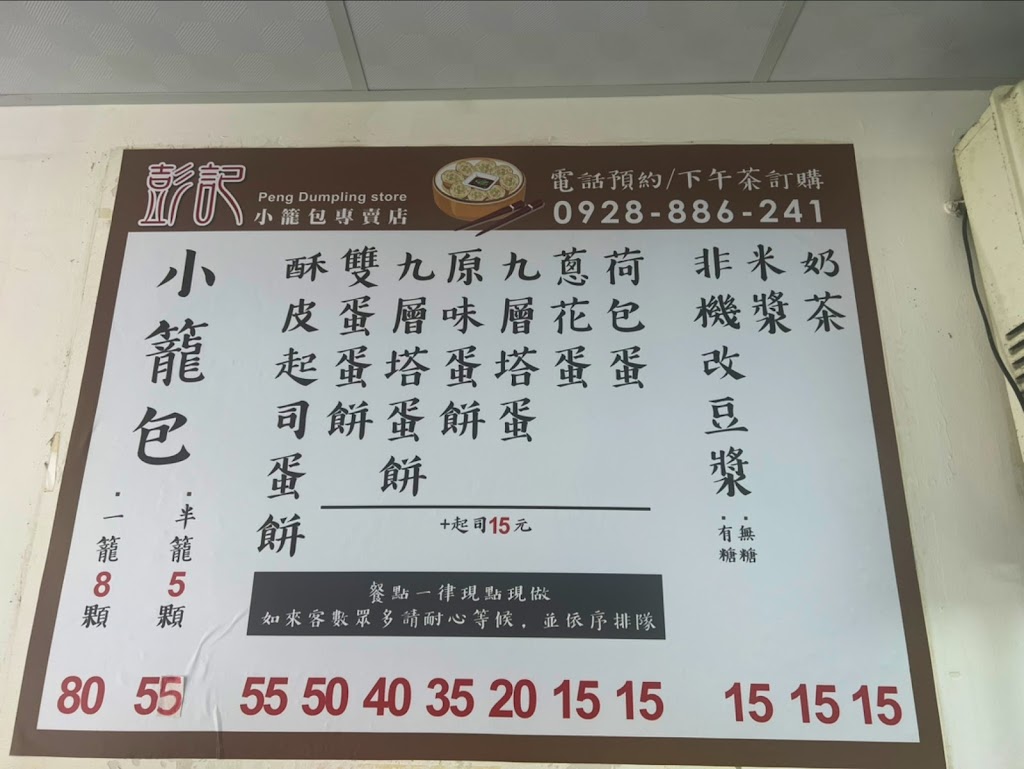 彭記
Peng Dumpling store
小籠包專賣店
電話預約/下午茶訂購
0928-886-241
奶茶
米漿
非機改豆漿
·無糖
·有糖
荷包蛋
蔥花蛋
九層塔蛋
原味蛋餅
九層塔蛋餅
雙蛋蛋餅
酥皮起司蛋餅
+起司15元
小籠包
·半籠5顆
·一籠8顆
餐點一律現點現做
如來客數眾多請耐心等候，並依序排隊
80 55 55 50 40 35 20 15 15 15 15 15